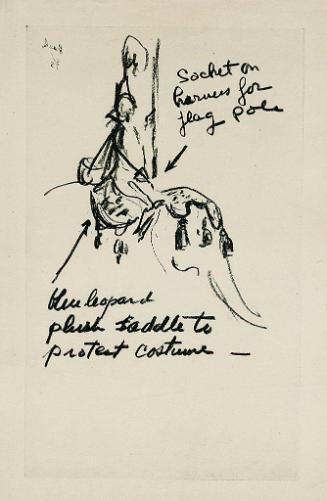 Socket on
harness for
flag pole
leopard
plush saddle to
protect costume —